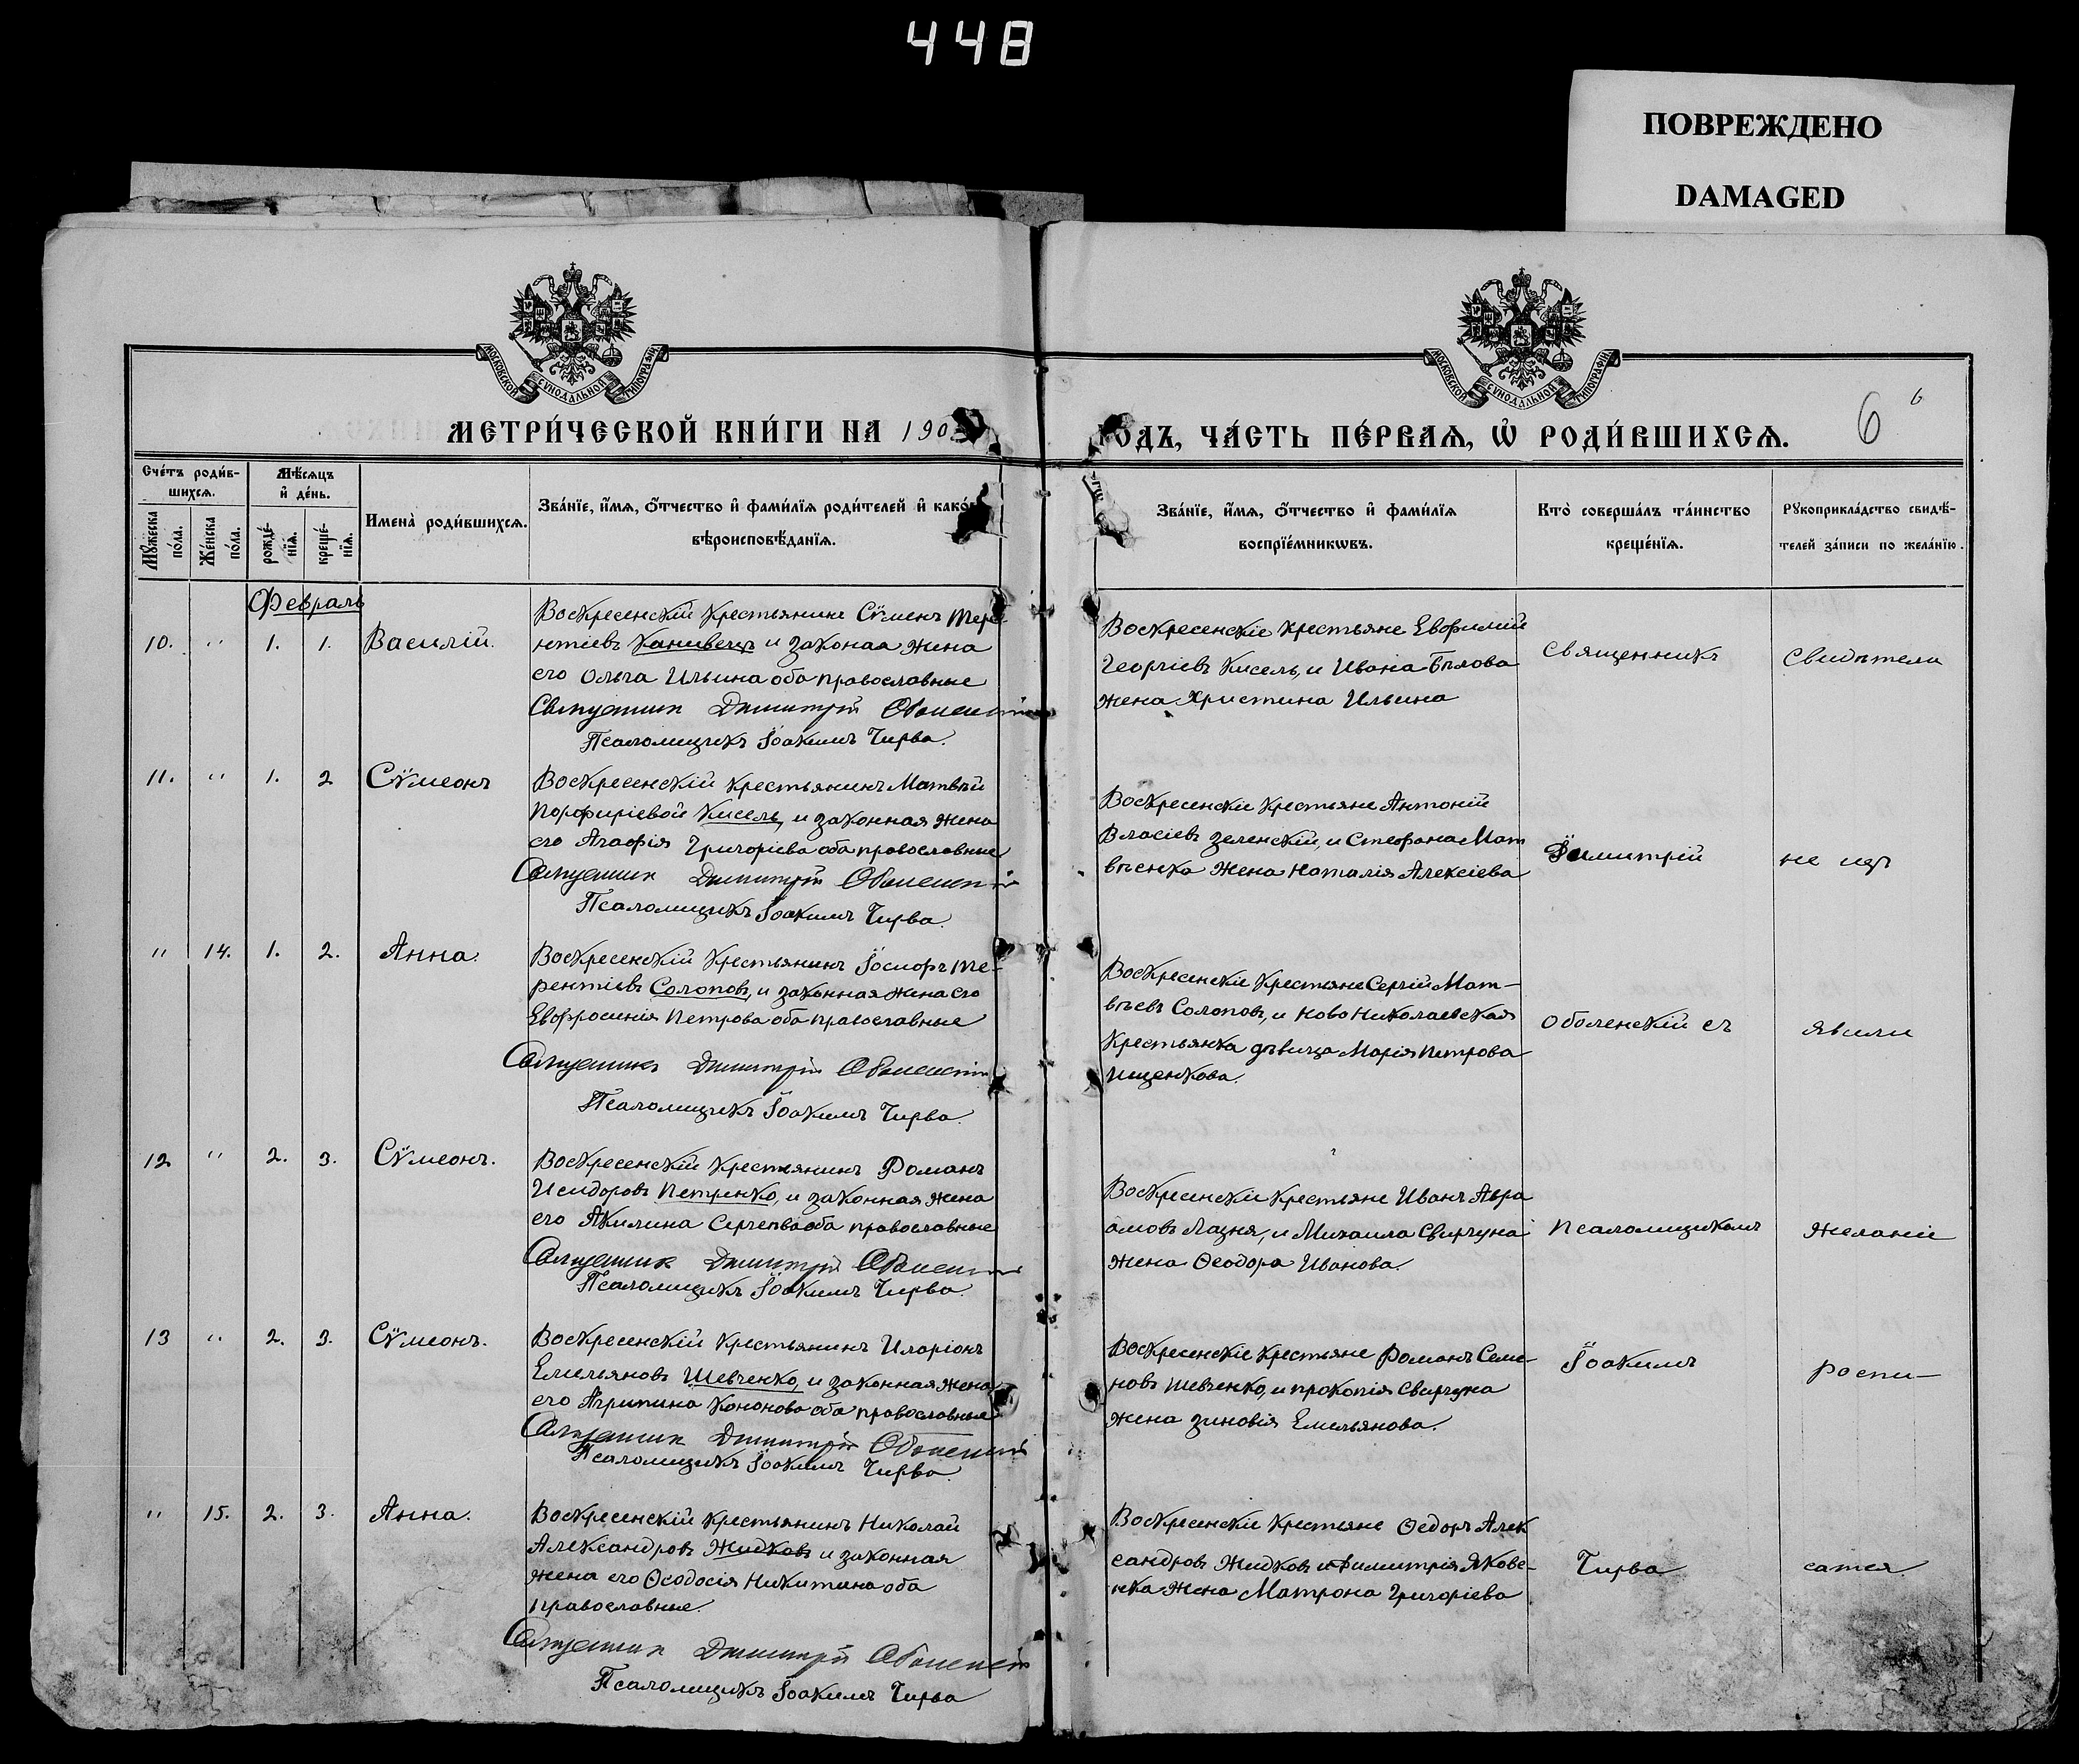 448
ПОВРЕЖДЕНО
DAMAGED
МОСКОВСКОЙ СѴНОДАЛЬНОЙ ТИПОГРАФІИ
МОСКОВСКОЙ СѴНОДАЛЬНОЙ ТИПОГРАФІИ
МЕТРИ́ЧЕСКОЙ КНИ́ГИ НА 190
ГОДЪ, ЧА́СТЬ ПЕ́РВАѦ, Ѡ РОДИ́ВШИХСѦ.
6
6
Сче́тъ роди́в-
шихсѧ.
Мѣ́сѧцъ
и де́нь.
Мꙋ́жеска
по́ла.
Же́нска
по́ла.
рожде́-
нїѧ.
креще́-
нїѧ.
Имена̀ роди́вшихсѧ.
Зва́нїе, и́мѧ, о́тчество и фами́лїѧ роди́телей и како́
вѣроисповѣ́данїѧ.
Зва́нїе, и́мѧ, о́тчество и фами́лїѧ
воспрїе́мникѡвъ.
Кто̀ соверша́лъ та́инство
креще́нїѧ.
Рꙋкоприкла́дство свидѣ́-
телей за́писи по жела́нїю.
Февраль
10. " 1. 1. Василій.
Воскресенскій крестьянинъ Сѵменъ Тере-
нтіевъ Канивецъ и законая жена
его Ольга Ильина оба православные
Священник Димитрій Оболенскій
Псаломщикъ Іоакимъ Чирва.
Воскресенскіе крестьяне Евфимій
Георгіевъ Кисель, и Ивана Бѣлова
жена Христина Ильина
Священникъ
Свидѣтели
11. " 1. 2 Сѵмеонъ
Воскресенскій крестьянинъ Матвѣй
Порфиріевой Кисель, и законная жена
его Агафія Григоріева оба православные
Священник Димитрій Оболенскій
Псаломщикъ Іоакимъ Чирва.
Воскресенскіе крестьяне Антоній
Власіевъ Зеленскій, и Стефана Мат
вѣенка жена Наталія Алексіева
Димитрій
не изъ
" 14. 1. 2. Анна.
Воскресенскій крестьянинъ Іосифъ Те-
рентіевъ Солоповъ, и законная жена его
Евфросинія Петрова оба православные
Священникъ Димитрій Оболенскій
Псаломщикъ Іоакимъ Чирва.
Воскресенскіе крестьяне Сергій Мат-
вѣевъ Солоповъ, и Ново Николаевская
крестьянка дѣвица Марія Петрова
Ищенкова.
Оболенскій съ
явили
12 " 2. 3. Сѵмеонъ.
Воскресенскій крестьянинъ Романъ
Исидоровъ Петренко, и законная жена
его Акилина Сергеева оба православные
Священник Димитрій Оболенскій
Псаломщикъ Іоакимъ Чирва.
Воскресенскіе крестьяне Иванъ Авра
амовъ Лазня, и Михаила Свиргуна
жена Ѳеодора Иванова.
Псаломщикомъ
желаніе
13 " 2. 3. Сѵмеонъ.
Воскресенскій крестьянинъ Иларіонъ
Емельяновъ Шевченко, и законная жена
его Агрипина Кононова оба православные
Священник Димитрій Оболенскій
Псаломщикъ Іоакимъ Чирва.
Воскресенскіе крестьяне Романъ Семе-
новъ Шевченко, и Прокопія Свиргуна
жена Зиновія Емельянова.
Іоакимъ
роспи-
" 15. 2. 3. Анна.
Воскресенскій крестьянинъ Николай
Александровъ Жидковъ и законная
жена его Ѳеодосія Никитина оба
православные.
Священник Димитрій Оболенскій
Псаломщикъ Іоакимъ Чирва
Воскресенскіе крестьяне Ѳедоръ Алек
сандровъ Жидковъ и Димитрія Якове-
нка жена Матрона Григоріева
Чирва
сатся